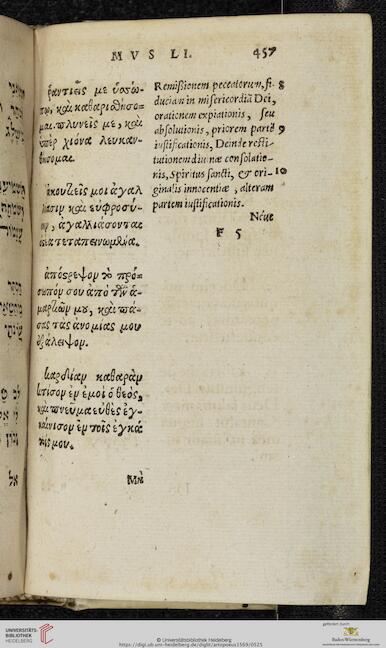 MVS LI. 457
ῥαντιεῖς με ὑσσώ-
πῳ, καὶ καθαρισθήσο-
μαι. πλυνεῖς με, καὶ
ὑπὲρ χιόνα λευκαν-
θήσομαι.
ἀκουτιεῖς μοι ἀγαλ
λίασιν καὶ εὐφροσύ-
νην, ἀγαλλιάσονται
ὀστέα τεταπεινωμένα.
ἀπόστρεψον τὸ πρό-
σωπόν σου ἀπὸ τῶν ἁ-
μαρτιῶν μου, καὶ πά-
σας τὰς ἀνομίας μου
ἐξάλειψον.
καρδίαν καθαρὰν
κτίσον ἐν ἐμοὶ ὁ θεός,
καὶ πνεῦμα εὐθὲς ἐγ-
καίνισον ἐν τοῖς ἐγκά
τοις μου.
Μὴ
Remissionem peccatorum, fi- 8
duciam in misericordiā Dei,
orationem expiationis, seu
absolutionis, priorem partē 9
iustificationis, Deinde resti-
tutionem diuinæ consolatio-
nis, Spiritus sancti, & ori- 10
ginalis innocentiæ, alteram
partem iustificationis.
Neue
F 5
UNIVERSITÄTS-
BIBLIOTHEK
HEIDELBERG
© Universitätsbibliothek Heidelberg
gefördert durch
Baden-Württemberg